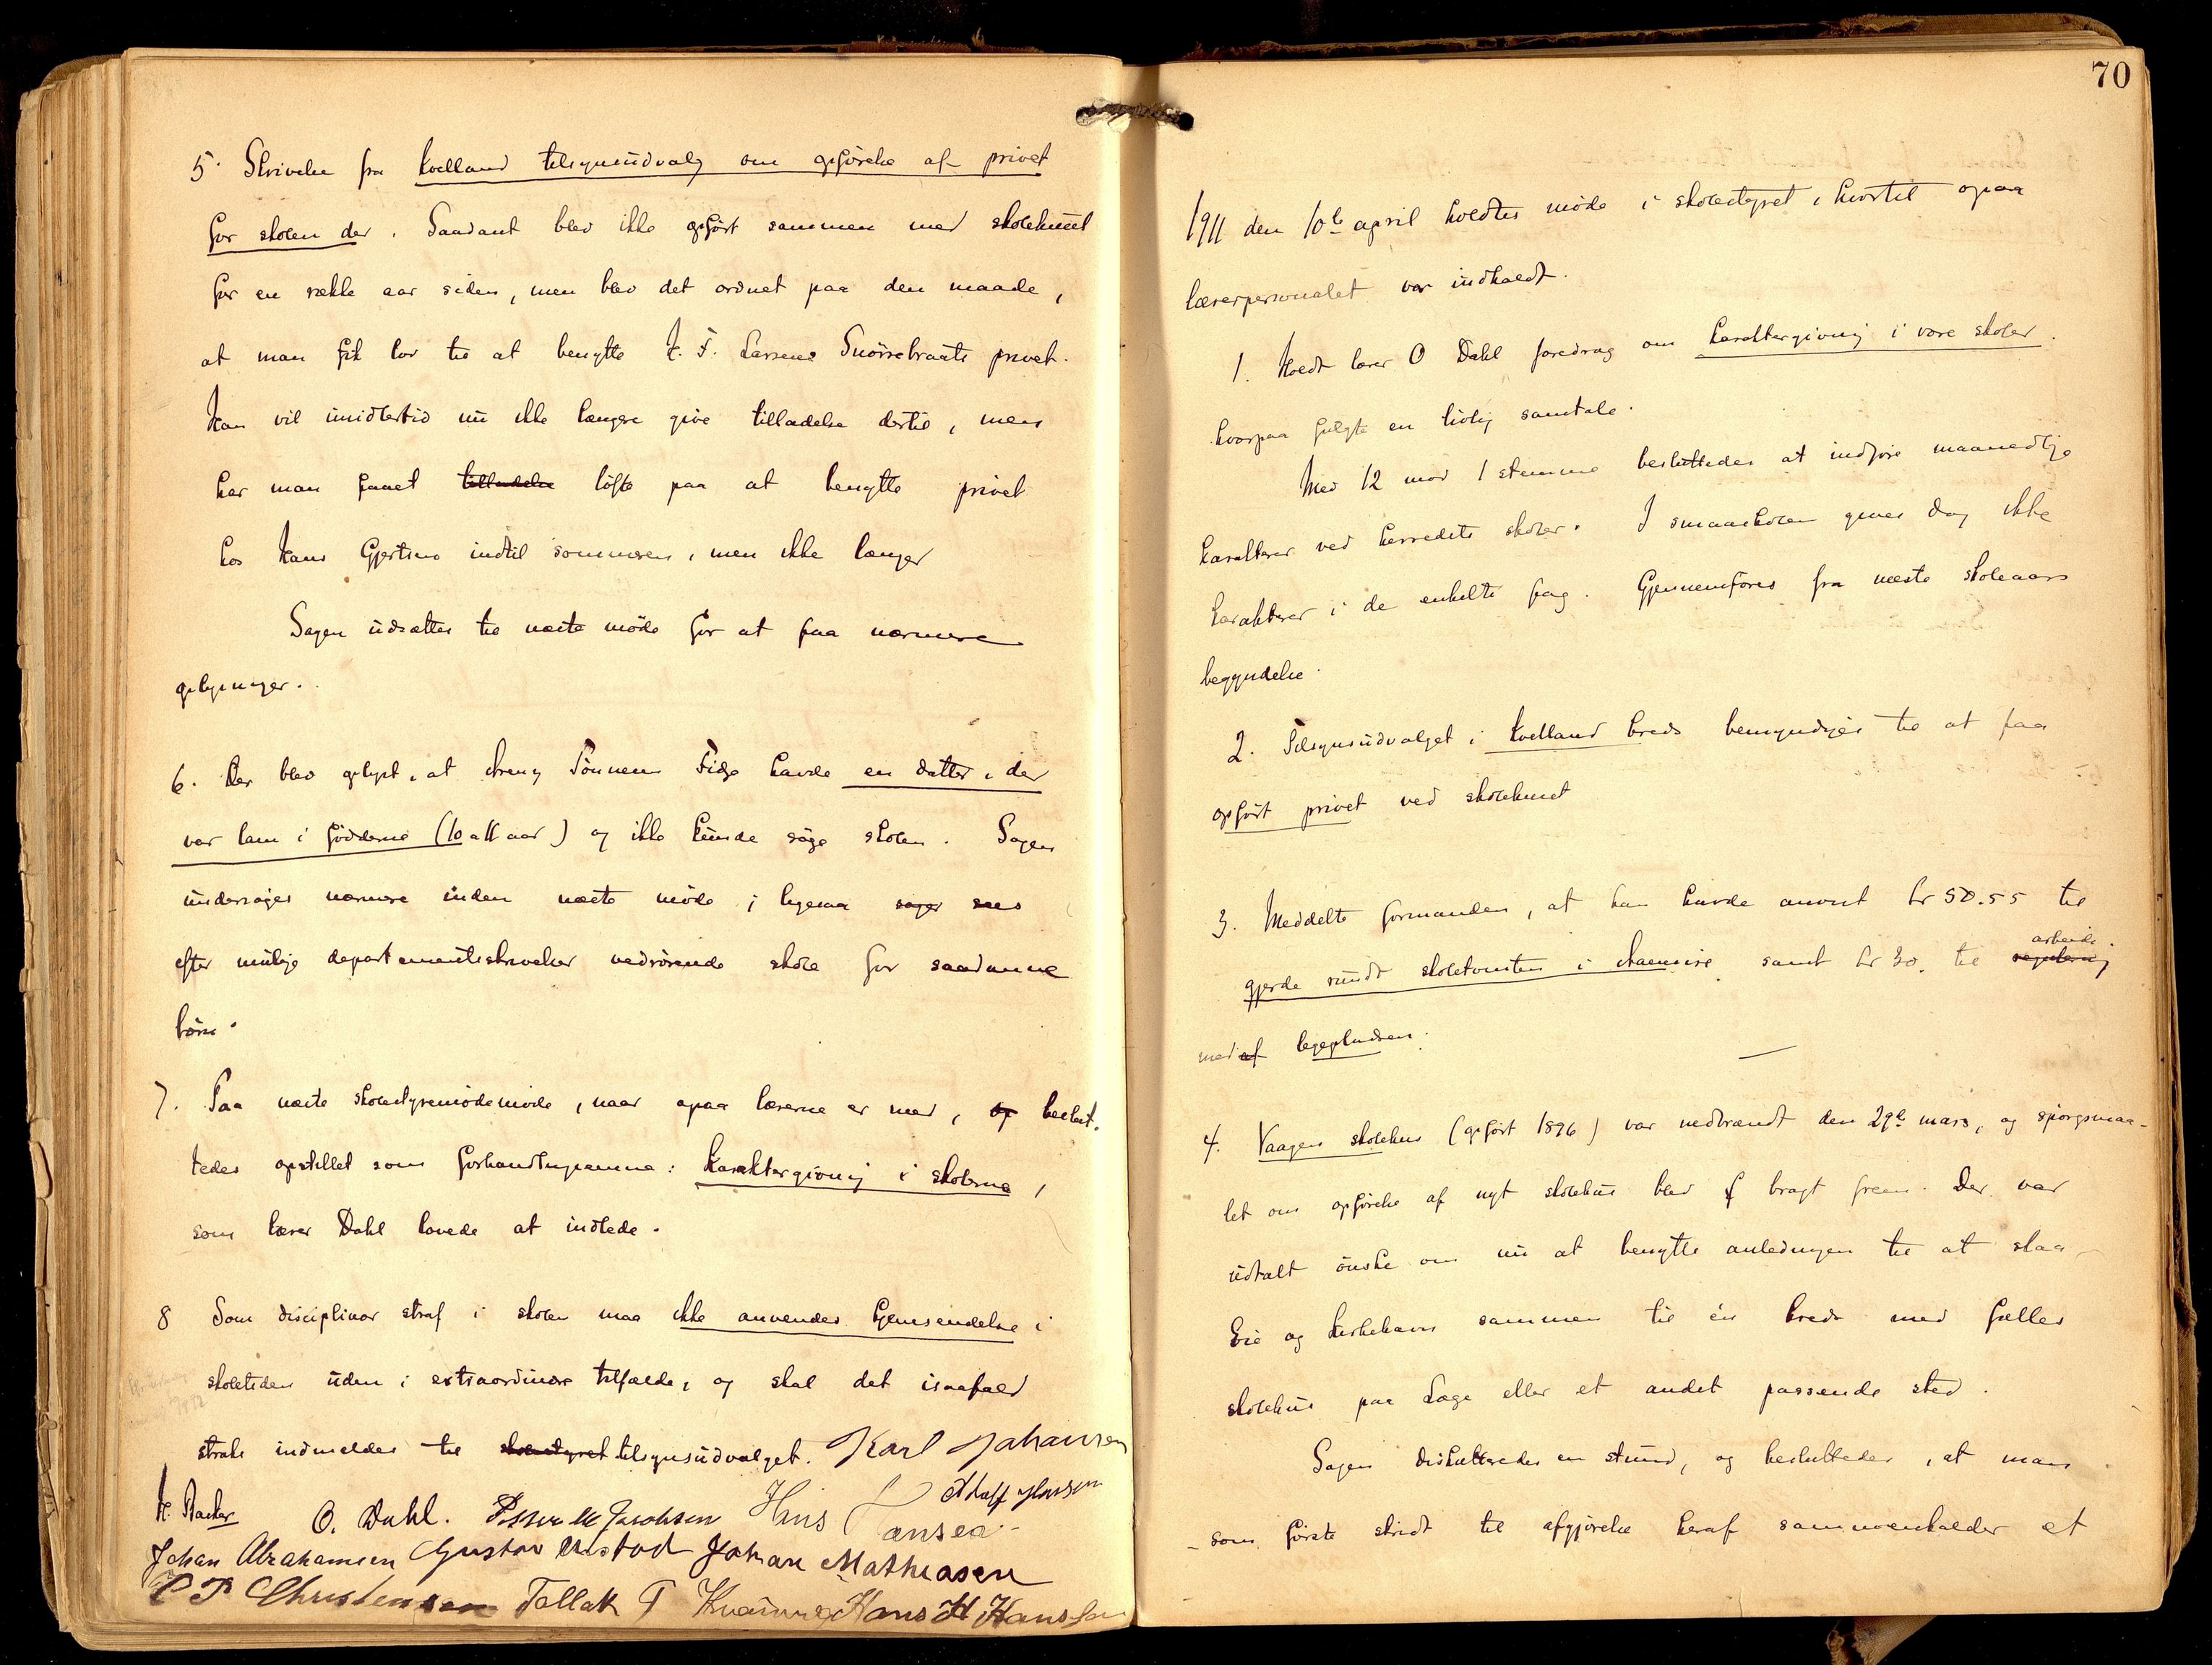 5. Skrivelse fra Kvelland tilsynsudvalg om opførelse af privet
for skolen der. Saadant blev ikke opført sammen med skolehuset
for en række aar siden, men blev det ordnet paa den maade,
at man fik lov til at benytte K. F. Larsens privet.
Han vil imidlertid nu ikke længere give tilladelse dertil, men
har man faaet tilladelse løfte paa at benytte privet
hos Hans Gjertsens indtil sommeren, men ikke længer
Sagen udsættes til næste møde for at faa nærmere
oplysninger.
6. Der blev oplyst, at Tønnes Fidje havde en datter, der
var lam i fødderne (10 a 11 aar) og ikke kunde søge skolen. Sagen
undersøges nærmere inden næste møde; ligesaa søger sees
efter mulige departementsskrivelser vedrørende skole for saadanne
børn.
7. Paa næste skolestyremøde møde, naar ogsaa lærerne er med, og beslut-
tedes opstillet som forhandlingsemne: Karaktergivning i skolerne,
som lærer Dahl lovede at indlede.
8 Som disciplinær straf i skolen maa ikke anvendes hjemsendelse i
skoletiden uden i extraordinære tilfælde, og skal det isaafald
straks indmeldes til skolestyret tilsynsudvalget. Karl Johansen
Adolf Hansen
O. Dahl. Peder M Jacobsen Hans Hansen
Johan Abrahamsen Gustav Johan Mathiasen
C P Christensen Tellak T Hans H Hanssen
70
1911 den 10de april holdtes møde i skolestyret, hvortil ogsaa
lærerpersonalet var indkaldt.
1. Holdt lærer O Dahl foredrag om karaktergivning i vore skoler.
hvorpaa fulgte en livlig samtale.
Med 12 mod 1 stemme besluttedes at indføre maanedlige
karakterer ved herredets skoler. I smaaskolen gives dog ikke
karakterer i de enkelte fag. Gjennemføres fra næste skoleaars
begyndelse.
2. Tilsynsudvalget i Kvelland kreds bemyndiges til at faa
opført privet ved skolehuset
3. Meddelte formanden, at han havde anvist kr 50.55 til
gjerde rundt skoletomten i samt kr 30. til regulering
arbeide
med af legepladsen.
4. Vaagen skolehus (opført 1896) var nedbrændt den 29de mars, og spørgsmaa-
let om opførelse af nyt skolehus blev f bragt frem. Der var
udtalt ønske om nu at benytte anledningen til at slaa
Eie og Kirkehavn sammen til én kreds med fælles
skolehus paa Lage eller et andet passende sted.
Sagen diskutteredes en stund, og besluttedes, at man
som første skridt til afgjørelse heraf sammenkalder et